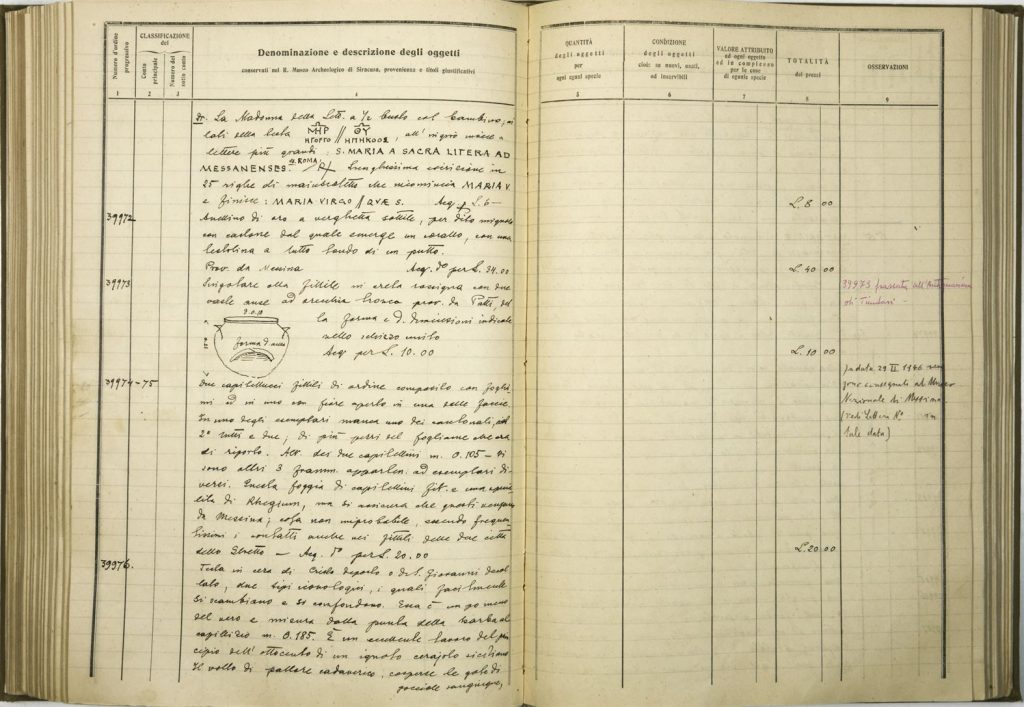 Numero d'ordine progressivo
CLASSIFICAZIONE del
Conto principale
Numero del sotto conto
Denominazione e descrizione degli oggetti
conservati nel R. Museo Archeologico di Siracusa, provenienza e titoli giustificativi
QUANTITÀ degli oggetti per ogni egual specie
CONDIZIONE degli oggetti cioè: se nuovi, usati, od inservibili
VALORE ATTRIBUITO ad ogni oggetto od in complesso per le cose di eguale specie
TOTALITÀ dei prezzi
OSSERVAZIONI
1 2 3 4 5 6 7 8 9
La Madonna della Lett. a 1/2 busto col Bambino; ai
lati della testa ΜΗΡ // ΘΥ
ΗΓΟΡΓΟ // ΗΠΗΚΟΟΣ, all'ingiro
lettere più grandi: S. MARIA A SACRA LITERA AD
MESSANENSES. ROMA lunghissima iscrizione in
25 righe di maiuscolette che ricomincia MARIA V.
e finisce: MARIA VIRGO // QVÆ S. Acq. p. L. 6 –
L. 8 00
39972
Anellino di oro a verghetta sottile, per dito mignolo
con castone dal quale emerge un corallo, con una
testolina a tutto tondo di un putto.
Prov. da Messina Acq. to per L. 34.00
L. 40 00
39973
Singolare olla fittile in creta rossigna con due
vaste anse ad orecchia prov. da Patti, del
la forma e d. dimensioni indicate
nello schizzo unito
Acq. per L. 10.00
forma d. anse
L. 10 00
39973 presenta all'Antiquarium
di Tindari –
39974-75
Due capitellucci fittili di ordine composito con foglia
mi ed in uno con fiore aperto in una delle faccie.
In uno degli esemplari manca uno dei cantonali, al
2° tutti e due; di più pezzi del fogliame
di riporto. Alt. dei due capitellini m. 0.105 – Vi
sono altri 3 framm. apparten. ad esemplari di
versi. Questa foggia di capitellini fit. è una
lità di Rhegium, ma si assicura che questi vengano
da Messina; cosa non improbabile, essendo frequen
tissimi i contatti anche nei fittili delle due città
dello Stretto – Acq. to per L. 20.00
L. 20 00
In data 29 II 1946 ven
gono consegnati al Museo
Nazionale di Messina
(vedi lettera N° in
tale data)
39976.
Testa in cera di Cristo deposto o di S. Giovanni decol
lato, due tipi iconologici, i quali facilmente
si scambiano e si confondono. Essa è un po meno
del vero e misura dalla punta della barba al
capillizio m. 0.185. È un eccellente lavoro del prin
cipio dell'ottocento di un ignoto cerajolo siciliano
Il volto di pallore cadaverico, cosperse le gote di
gocciole sanguigne,